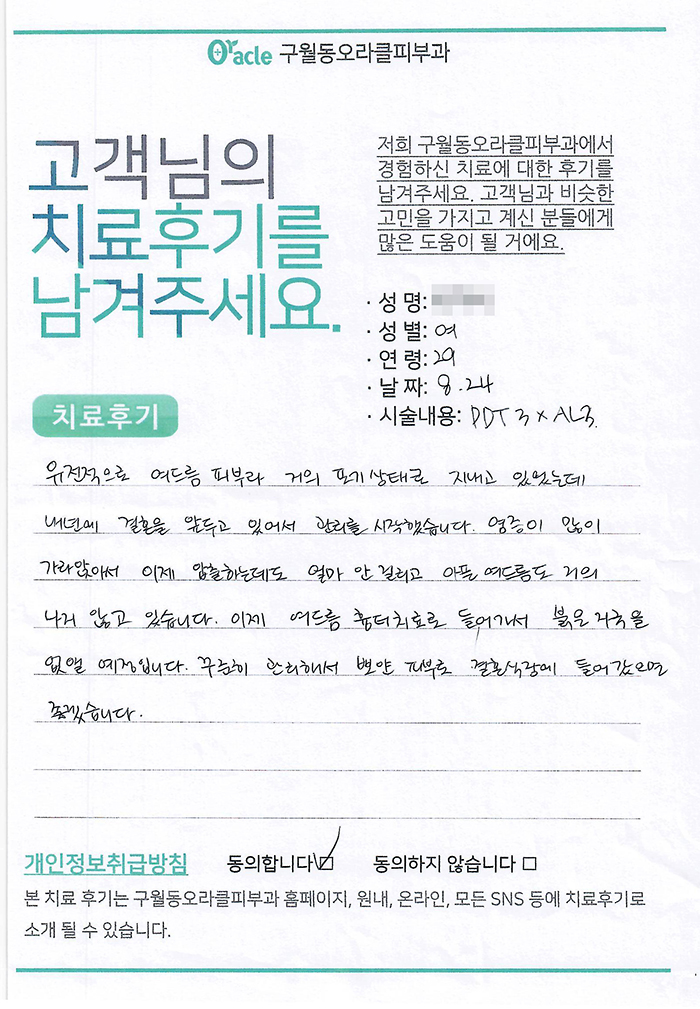 Oracle 구월동오라클피부과
고객님의
치료후기를
남겨주세요.
저희 구월동오라클피부과에서
경험하신 치료에 대한 후기를
남겨주세요. 고객님과 비슷한
고민을 가지고 계신 분들에게
많은 도움이 될 거에요.
· 성 명:
· 성 별: 여
· 연 령: 29
· 날 짜: 8.24
· 시술내용: PDT 3 x AL3
치료후기
유전적으로 여드름 피부라 거의 포기상태로 지내고 있었는데
내년에 결혼을 앞두고 있어서 관리를 시작했습니다. 염증이 많이
가라앉아서 이제 압출하는데도 얼마 안 걸리고 아픈 여드름도 거의
나지 않고 있습니다. 이제 여드름 흉터치료로 들어가서 붉은 자국을
없앨 예정입니다. 꾸준히 관리해서 뽀얀 피부로 결혼식장에 들어갔으면
좋겠습니다.
개인정보취급방침 동의합니다 동의하지 않습니다
본 치료 후기는 구월동오라클피부과 홈페이지, 원내, 온라인, 모든 SNS 등에 치료후기로
소개 될 수 있습니다.